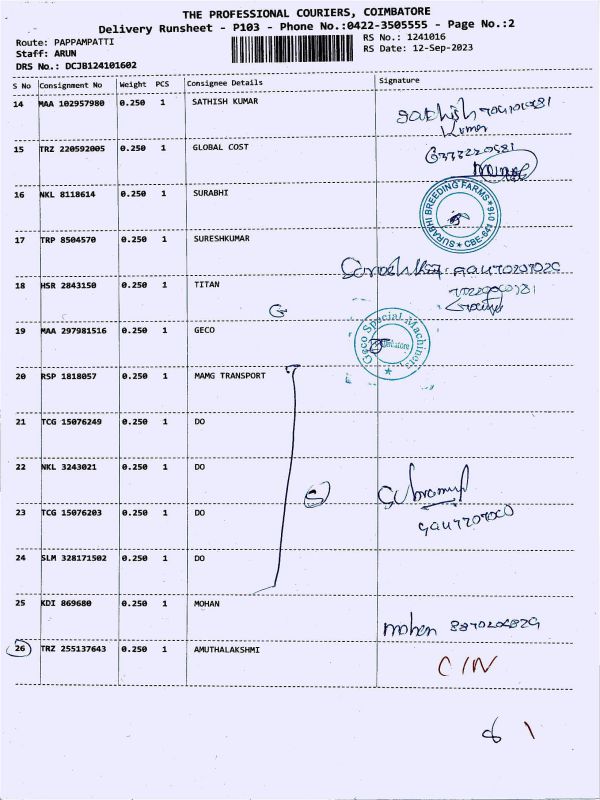 THE PROFESSIONAL COURIERS, COIMBATORE
Delivery Runsheet - P103 - Phone No.:0422-3505555 - Page No.:2
Route: PAPPAMPATTI
RS No.: 1241016
Staff: ARUN
RS Date: 12-Sep-2023
DRS No.: DCJB124101602
S No Consignment No Weight PCS Consignee Details Signature
14 MAA 102957980 0.250 1 SATHISH KUMAR
Kumar
15 TRZ 220592005 0.250 1 GLOBAL COST
16 NKL 8118614 0.250 1 SURABHI
SURABHI BREEDING FARMS * CBE-641 016 *
17 TRP 8504570 0.250 1 SURESHKUMAR
18 HSR 2843150 0.250 1 TITAN
19 MAA 297981516 0.250 1 GECO
Geco Special Machines
20 RSP 1818057 0.250 1 MAMG TRANSPORT
21 TCG 15076249 0.250 1 DO
22 NKL 3243021 0.250 1 DO
5
23 TCG 15076203 0.250 1 DO
24 SLM 328171502 0.250 1 DO
25 KDI 869680 0.250 1 MOHAN
mohan
26 TRZ 255137643 0.250 1 AMUTHALAKSHMI
C/N